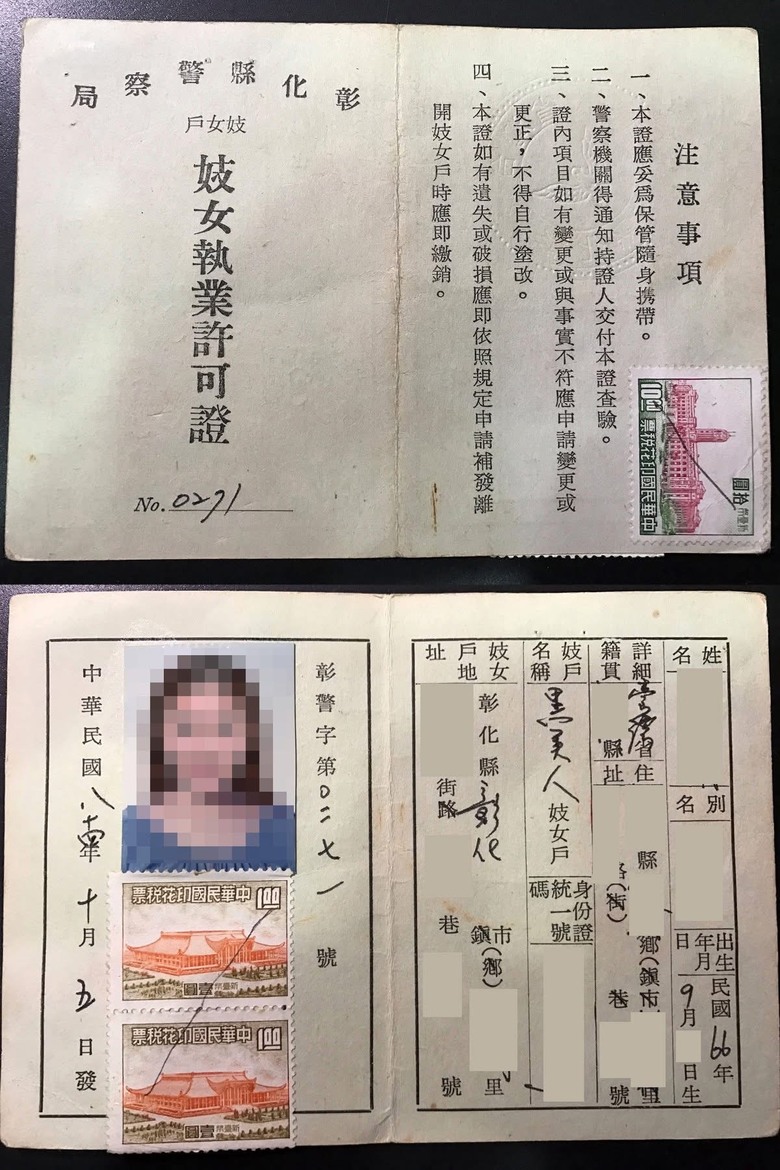 注意事項
一、本證應妥為保管隨身攜帶。
二、警察機關得通知持證人交付本證查驗。
三、證內項目如有變更或與事實不符應申請變更或
更正，不得自行塗改。
四、本證如有遺失或破損應即依照規定申請補發離
開妓女戶時應即繳銷。
中華民國印花稅票
10.00
新臺幣
拾圓
彰化縣警察局
妓女戶
妓女執業許可證
No. 0271
姓名
別名
出生年月日
民國66年9月 日生
詳細籍貫
省 縣
住址
縣 鄉(鎮市) 里
路(街) 巷 號
妓戶名稱
黑美人妓女戶
身份證統一號碼
妓女戶地址
彰化縣彰化市鎮(鄉) 里
街路 巷 號
彰警字第0二七一號
中華民國八十四年十月五日發
中華民國印花稅票
1.00
新臺幣
壹圓
中華民國印花稅票
1.00
新臺幣
壹圓